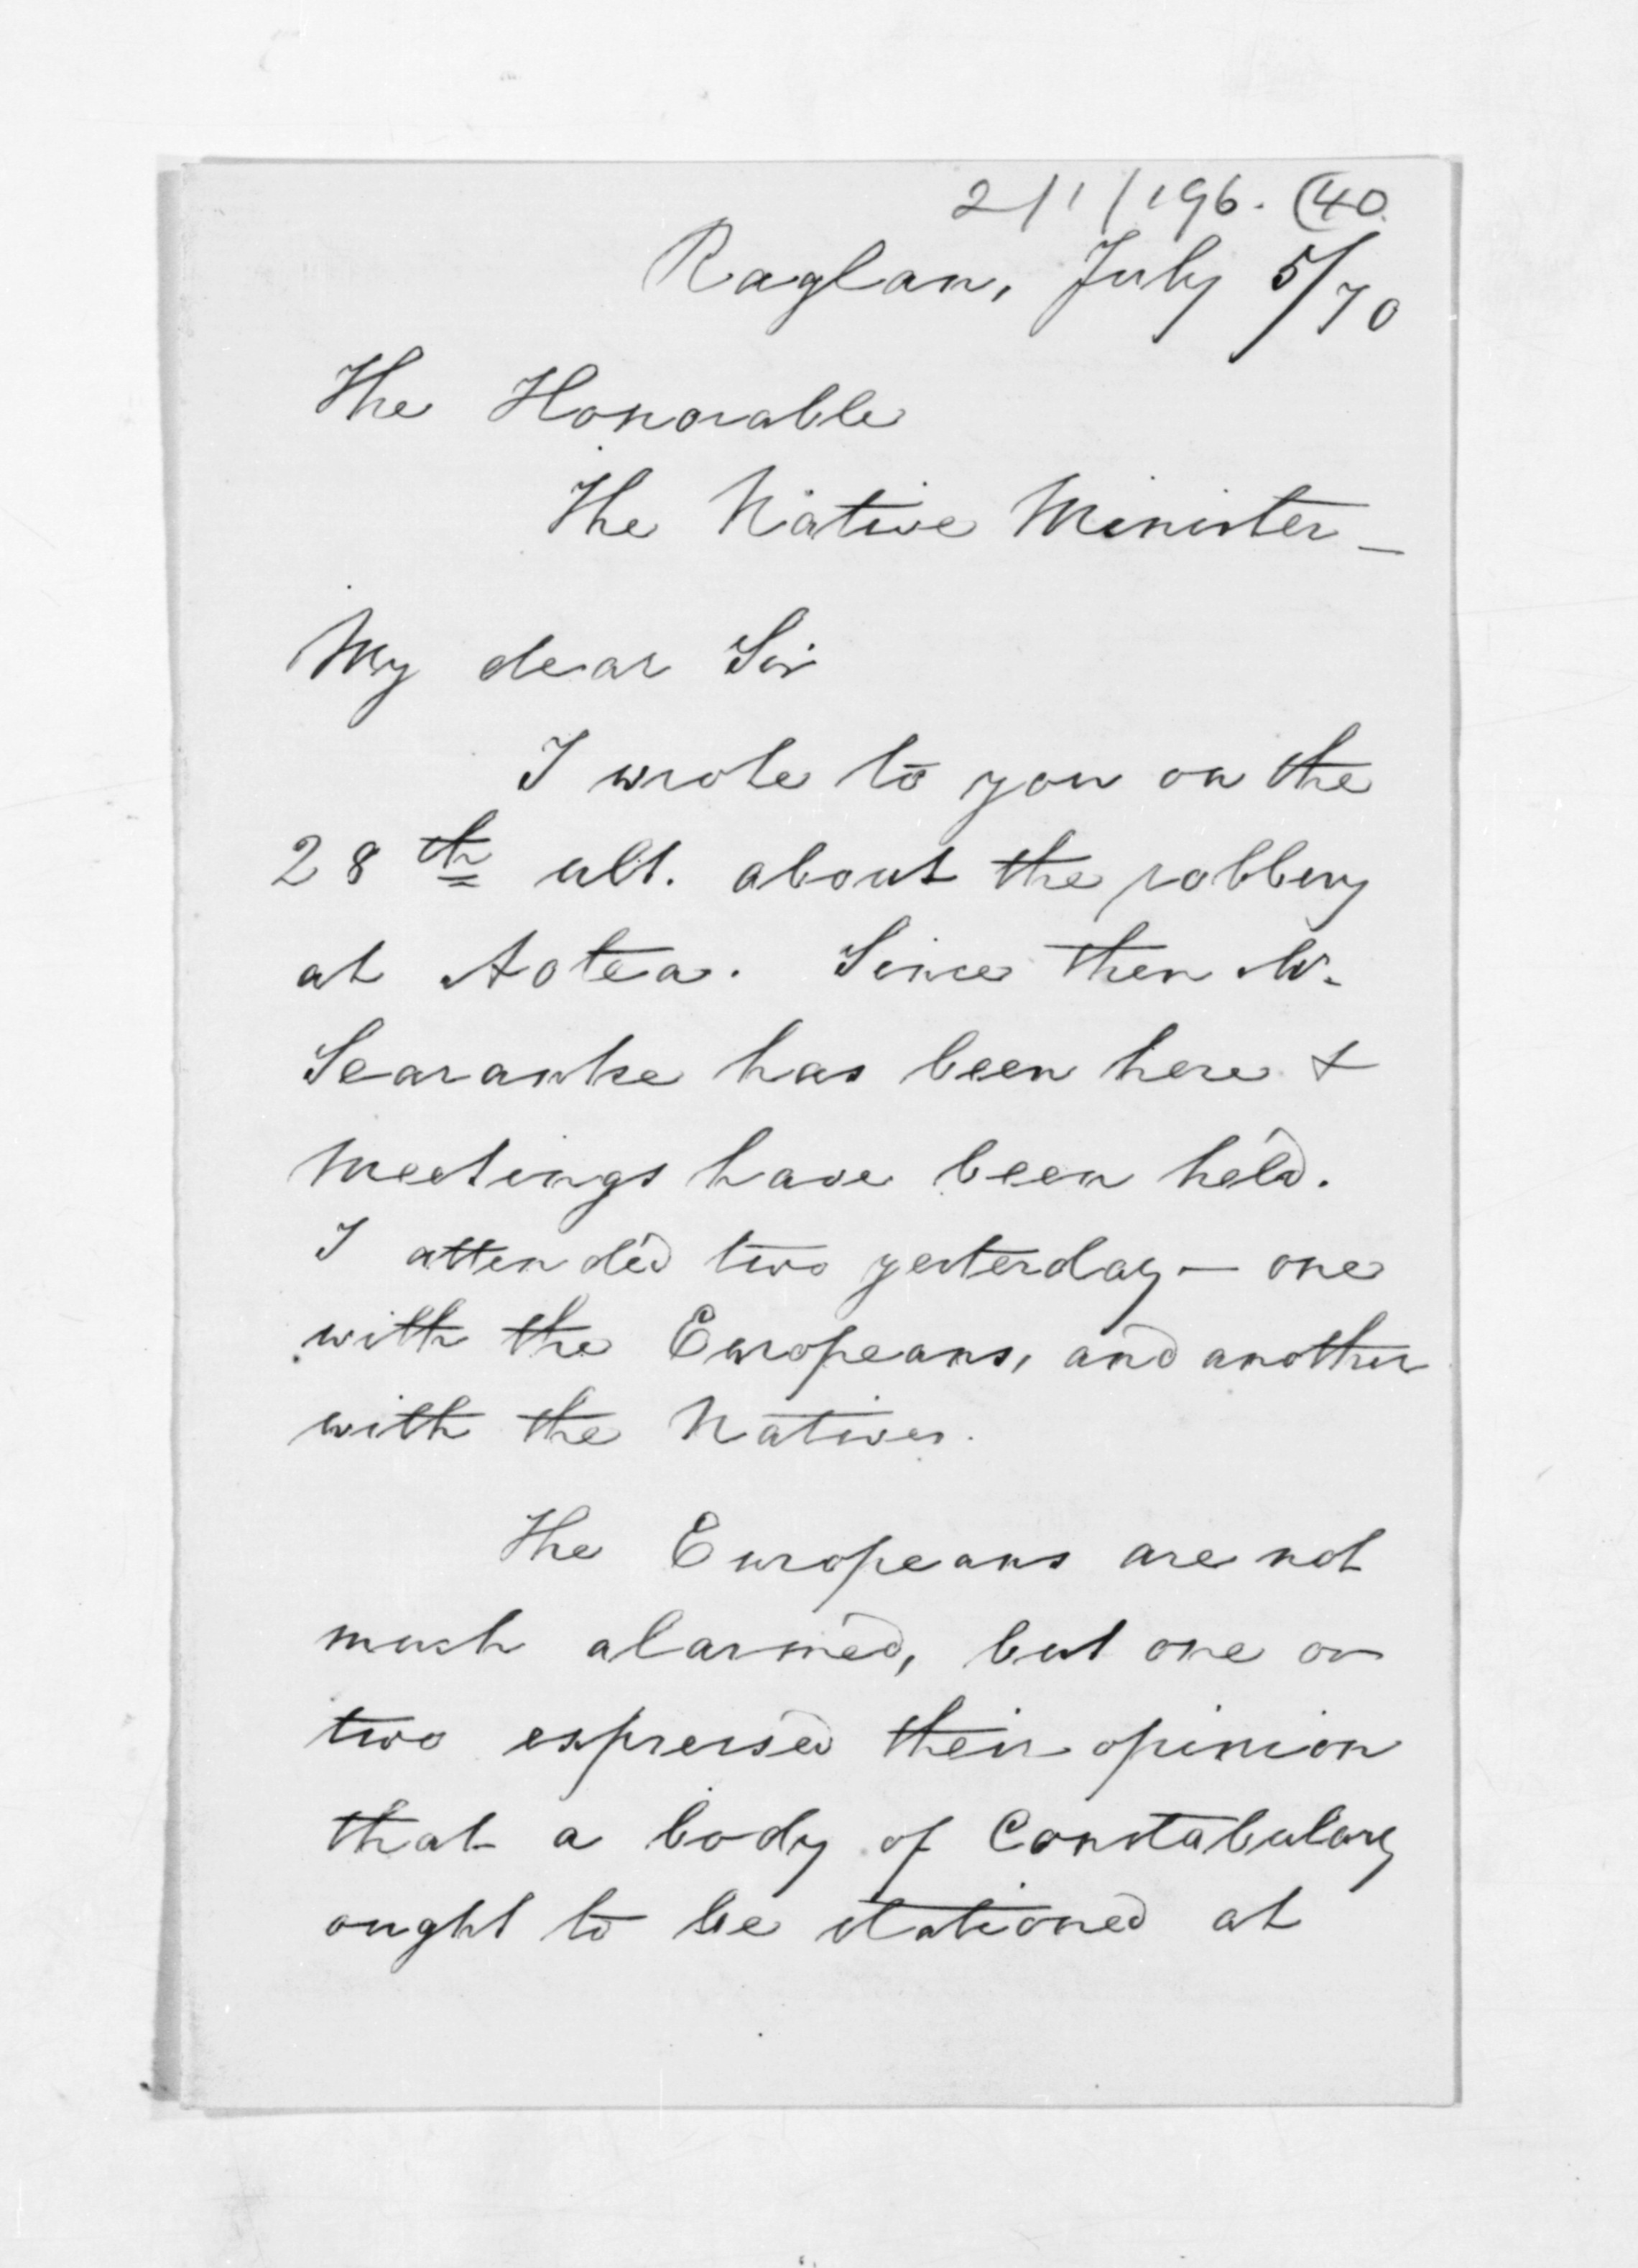 2/1/196. (40.
Raglan, July 5/70
The Honorable
The Native Minister_
My dear Sir
I wrote to you on the
28th ult. about the robbery
at Aotea. Since then Mr.
Searanke has been here &
meetings have been held.
I attended two yesterday — one
with the Europeans, and another
with the Natives.
The Europeans are not
much alarmed, but one or
two expressed their opinion
that a body of Constabulary
ought to be stationed at